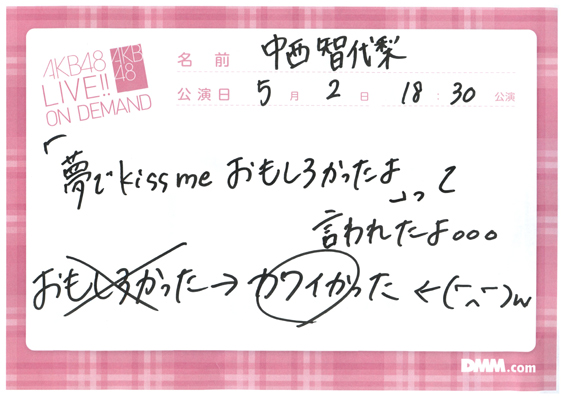 AKB48
LIVE!!
ON DEMAND
AKB
48
名前 中西智代梨
公演日 5月2日 18:30公演
「夢でkiss me おもしろかったよ」って
言われたよ。。。
おもしろかった→カワイかった ←(-^-)w
DMM.com